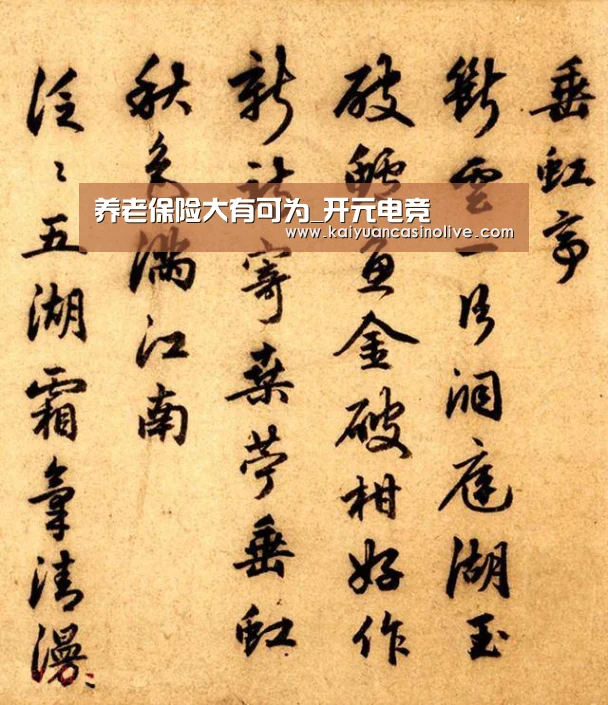 垂虹亭
斷雲一片洞庭湖玉
破鱸魚金破柑好作
新詩寄桑苧垂虹
秋色滿江南
泛〻五湖霜氣清漫〻
养老保险大有可为_开元电竞
www.kaiyuancasinolive.com